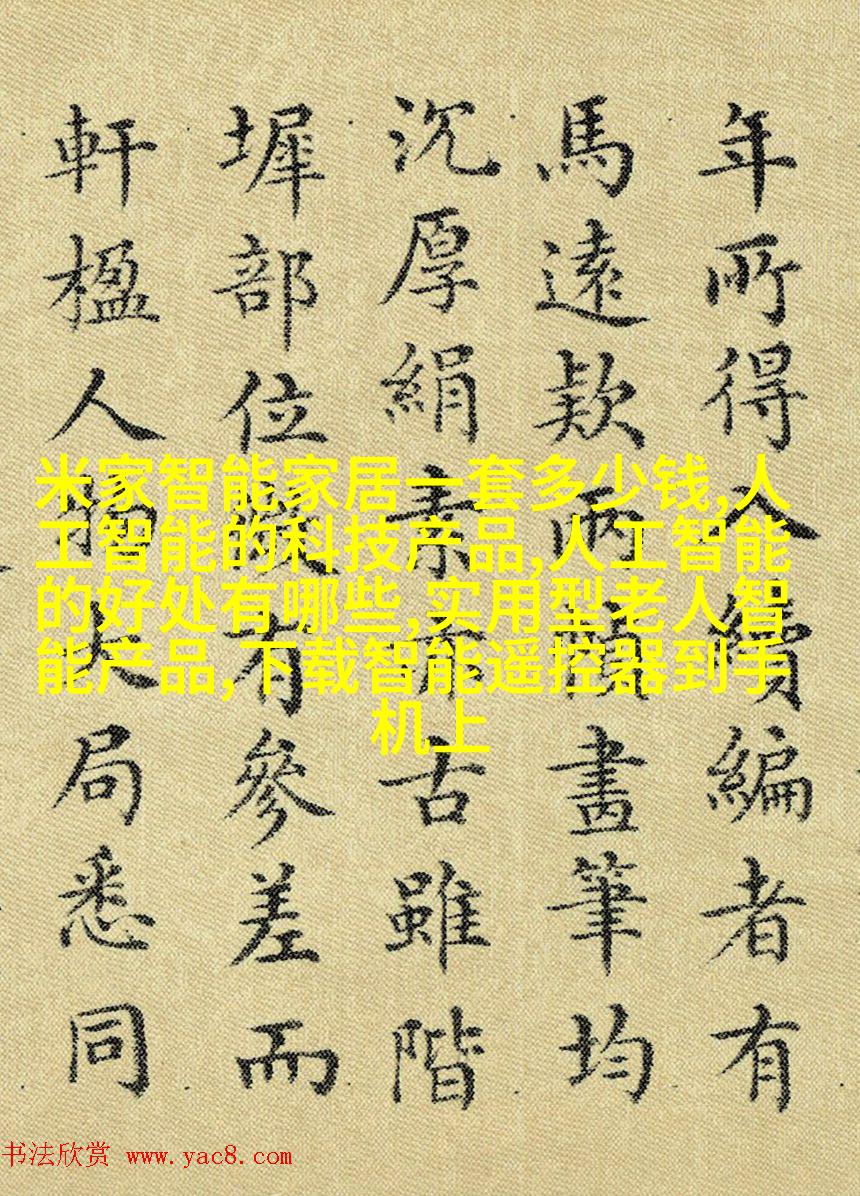 年所得入續編者有
馬遠款兩畫筆均
沉厚絹素亦古雖階
墀部位有參差而
軒楹人物大局悉同
米家智能家居一套多少钱,人
工智能的科技产品,人工智能
的好处有哪些,实用型老人智
能产品,下载智能遥控器到手
机上
书法欣赏 www.yac8.com